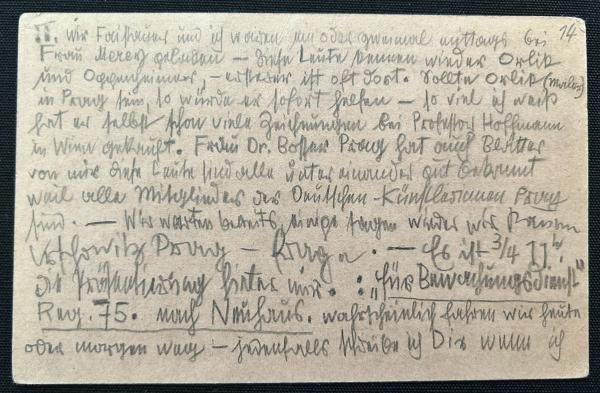 II. wir Faistauer und ich waren ein oder zweimal mittags bei 14
Frau Mercy geladen – diese Leute kennen wieder Orlik
und Oppenheimer, – ersterer ist oft dort. Sollte Orlik (Maler)
in Prag sein, so würde er sofort helfen – so viel ich weiß
hat er selbst schon viele Zeichnungen bei Professor Hoffmann
in Wien gekauft. Frau Dr. Bosser Prag hat auch Blätter
von mir diese Leute sind alle untereinander gut bekannt
weil alle Mitglieder der Deutschen Künstlerinnen Prag
sind. – Wir warten bereits einige sagen wieder wir kamen
Prag – Praga. – Es ist 3/4 11h.
die Präsentierung hinter mir. : „für Bewachungsdienst"
Reg. 75. nach Neuhaus. wahrscheinlich fahren wir heute
oder morgen weg – jedenfalls schreibe ich Dir wann ich